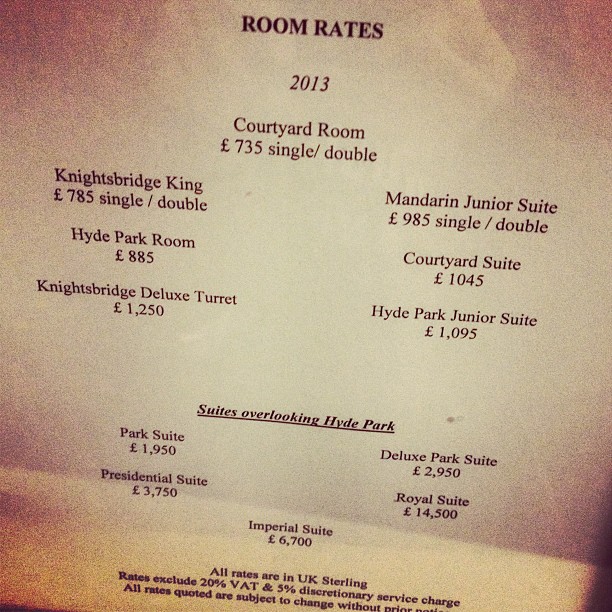 ROOM RATES
2013
Courtyard Room
£ 735 single/ double
Knightsbridge King
£ 785 single / double
Hyde Park Room
£ 885
Knightsbridge Deluxe Turret
£ 1,250
Mandarin Junior Suite
£ 985 single / double
Courtyard Suite
£ 1045
Hyde Park Junior Suite
£ 1,095
Suites overlooking Hyde Park
Park Suite
£ 1,950
Deluxe Park Suite
£ 2,950
Presidential Suite
£ 3,750
Royal Suite
£ 14,500
Imperial Suite
£ 6,700
All rates are in UK Sterling
Rates exclude 20% VAT & 5% discretionary service charge
All rates quoted are subject to change without prior